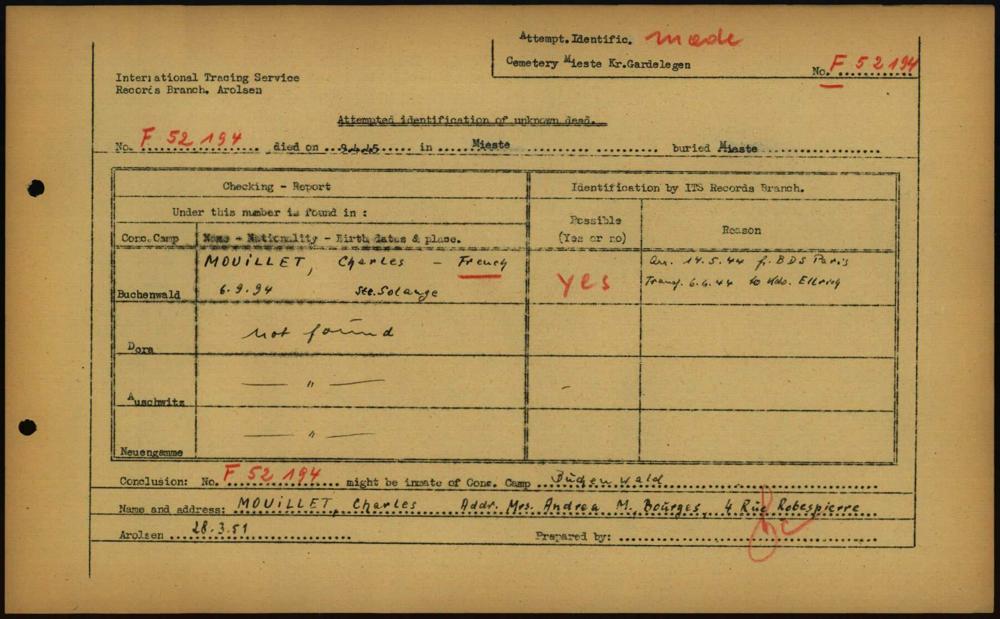 Attempt.Identific. made
Cemetery Mieste Kr.Gardelegen
No. F 52194
International Tracing Service
Records Branch. Arolsen
Attempted identification of unknown dead.
No. F 52 194 died on 9.4.45 in Mieste buried Mieste
Checking - Report
Identification by ITS Records Branch.
Under this number is found in :
Possible
(Yes or no)
Reason
Conc.Camp
Name - Nationality - Birth dates & place.
MOUILLET, Charles - French
6.9.94 Ste.Solange
Buchenwald
yes
Arr. 14.5.44 f. BDS Paris
Transf. 6.6.44 to Kdo. Ellrich
not found
Dora
— " —
Auschwitz
-
— " —
Neuengamme
Conclusion: No. F 52 194 might be inmate of Conc. Camp Buchenwald
Name and address: MOUILLET, Charles Addr. Mrs. Andrea M. Bourges, 4 Rue Robespierre
Arolsen 28.3.51 Prepared by: